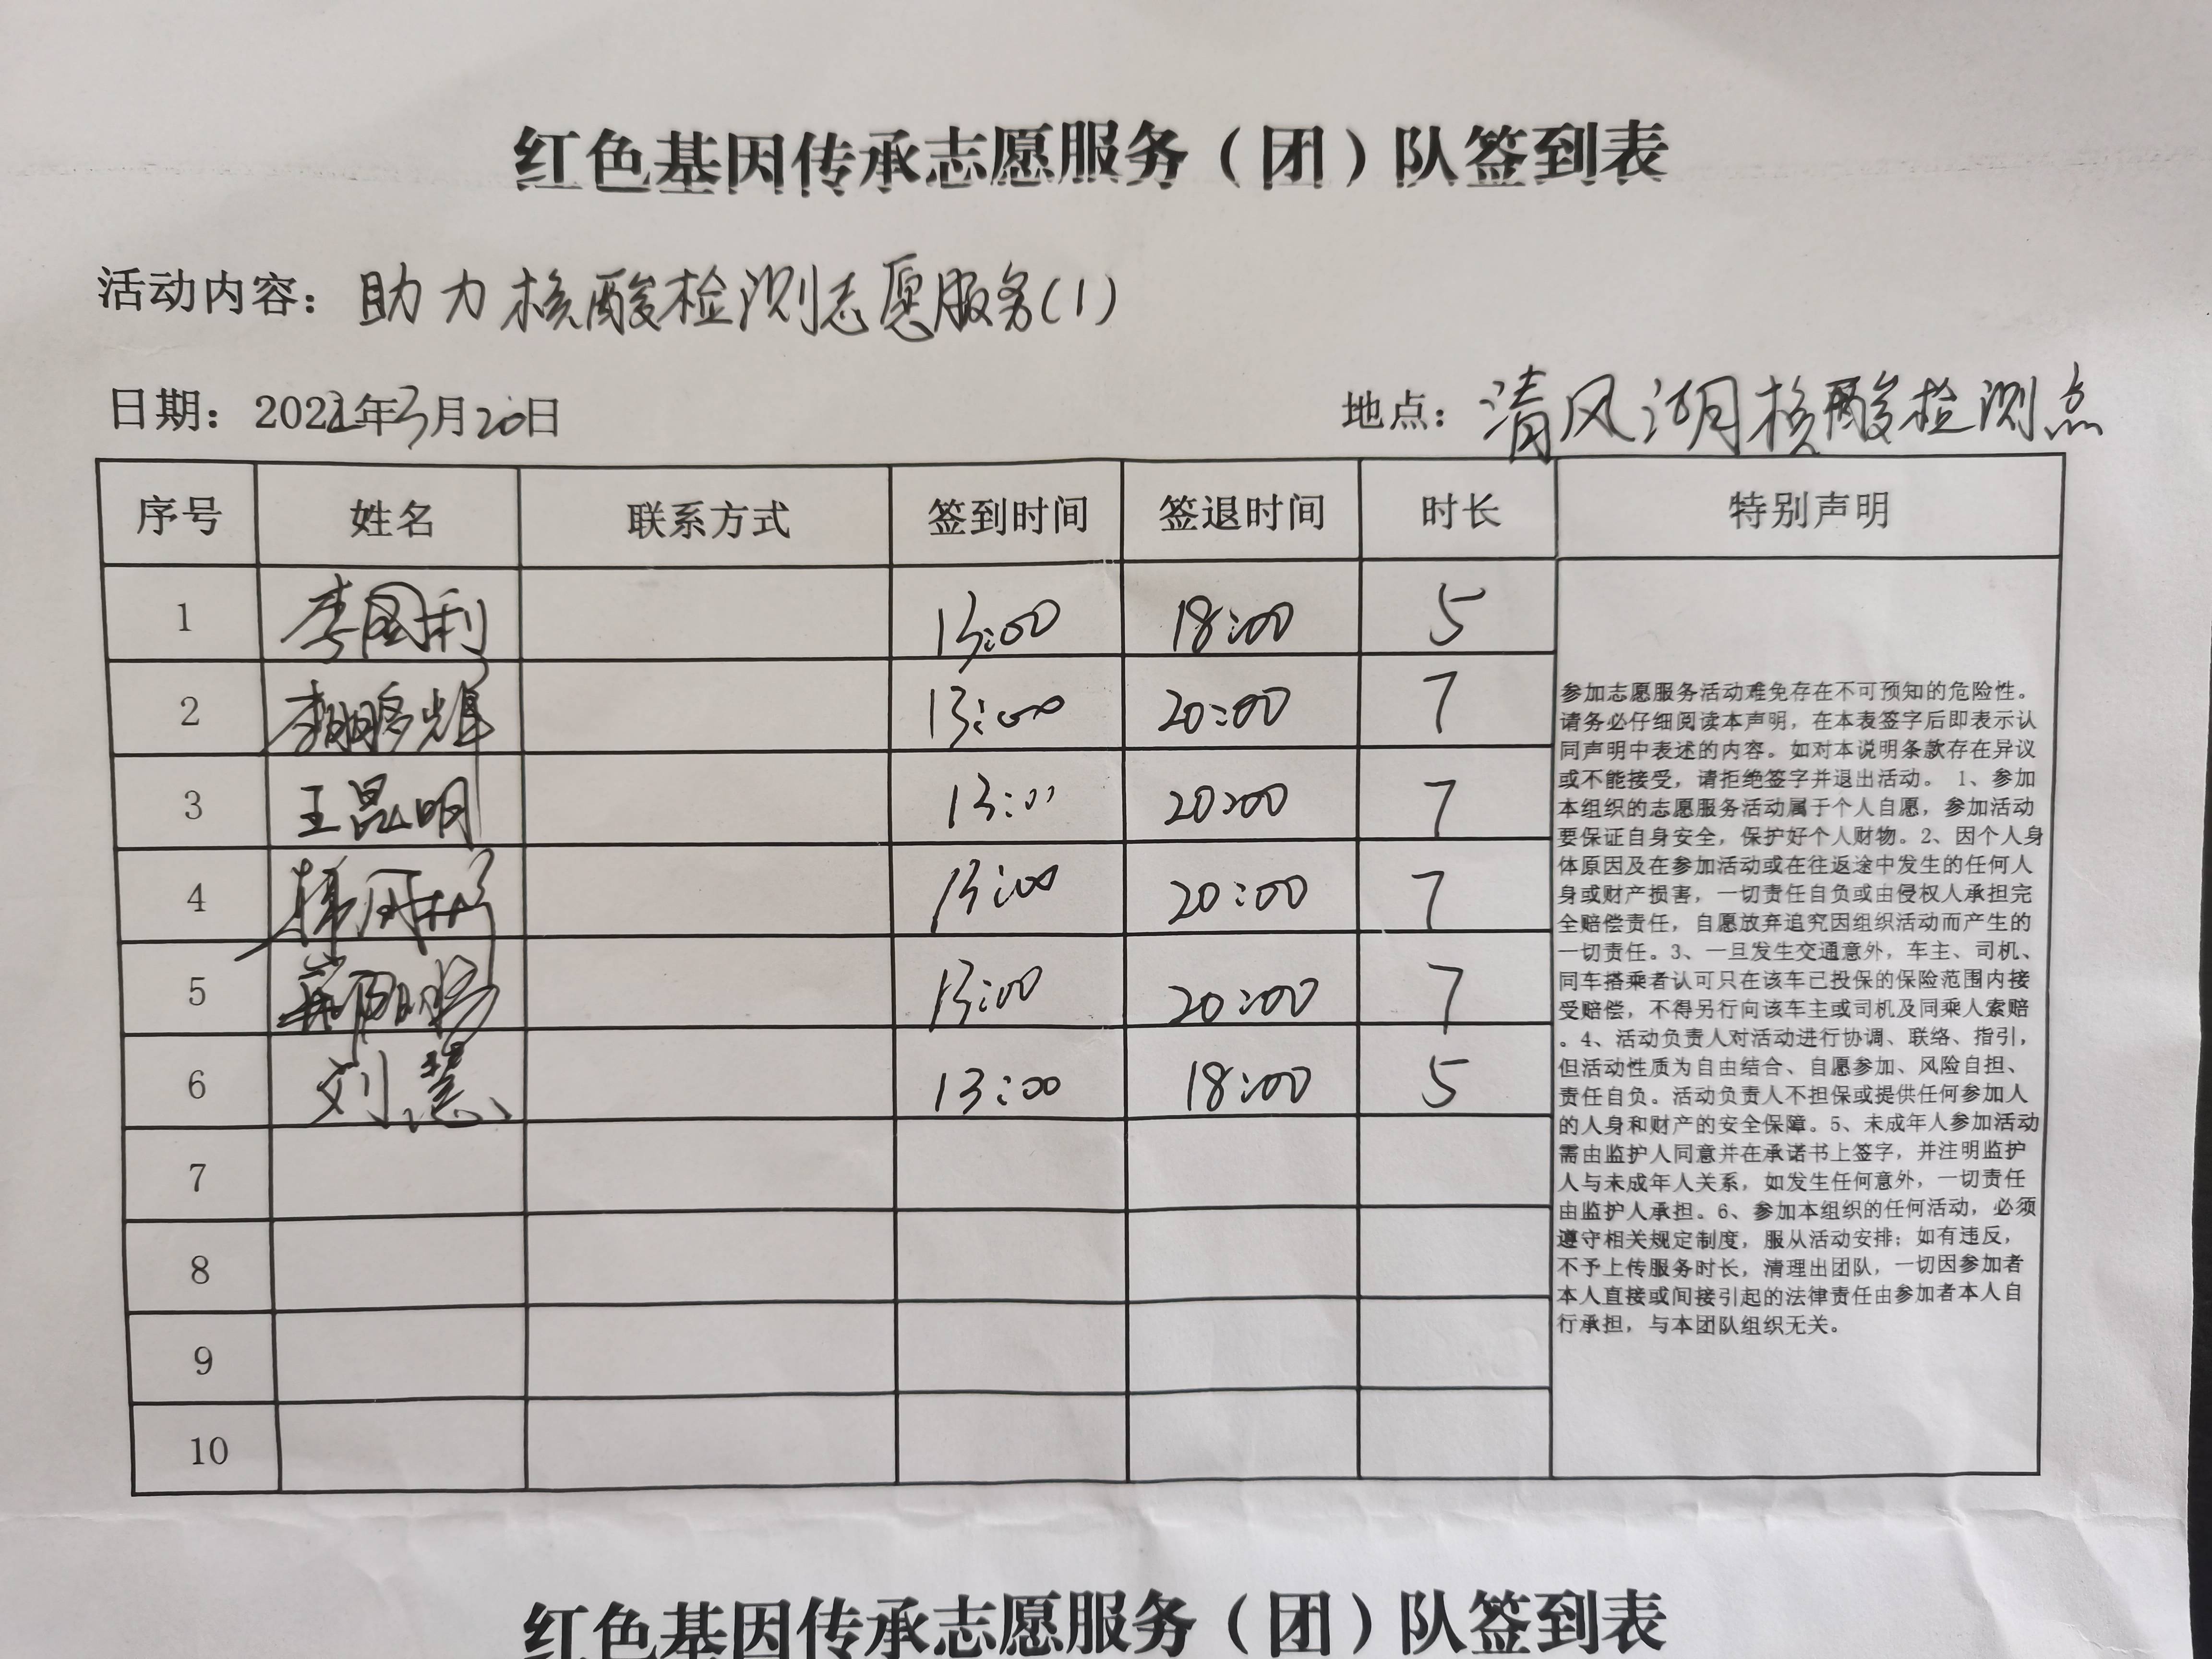 红色基因传承志愿服务（团）队签到表
活动内容：助力核酸检测志愿服务(1)
日期：2022年3月20日 地点：清风湖核酸检测点
序号 姓名 联系方式 签到时间 签退时间 时长 特别声明
1 李国利 13:00 18:00 5
2 李鹏辉 13:00 20:00 7
3 王昆明 13:00 20:00 7
4 13:00 20:00 7
5 13:00 20:00 7
6 刘慧 13:00 18:00 5
7
8
9
10
参加志愿服务活动难免存在不可预知的危险性。
请务必仔细阅读本声明，在本表签字后即表示认
同声明中表述的内容。如对本说明条款存在异议
或不能接受，请拒绝签字并退出活动。 1、参加
本组织的志愿服务活动属于个人自愿，参加活动
要保证自身安全，保护好个人财物。2、因个人身
体原因及在参加活动或在往返途中发生的任何人
身或财产损害，一切责任自负或由侵权人承担完
全赔偿责任，自愿放弃追究因组织活动而产生的
一切责任。3、一旦发生交通意外，车主、司机、
同车搭乘者认可只在该车已投保的保险范围内接
受赔偿，不得另行向该车主或司机及同乘人索赔
。4、活动负责人对活动进行协调、联络、指引，
但活动性质为自由结合、自愿参加、风险自担、
责任自负。活动负责人不担保或提供任何参加人
的人身和财产的安全保障。5、未成年人参加活动
需由监护人同意并在承诺书上签字，并注明监护
人与未成年人关系，如发生任何意外，一切责任
由监护人承担。6、参加本组织的任何活动，必须
遵守相关规定制度，服从活动安排；如有违反，
不予上传服务时长，清理出团队，一切因参加者
本人直接或间接引起的法律责任由参加者本人自
行承担，与本团队组织无关。
红色基因传承志愿服务（团）队签到表